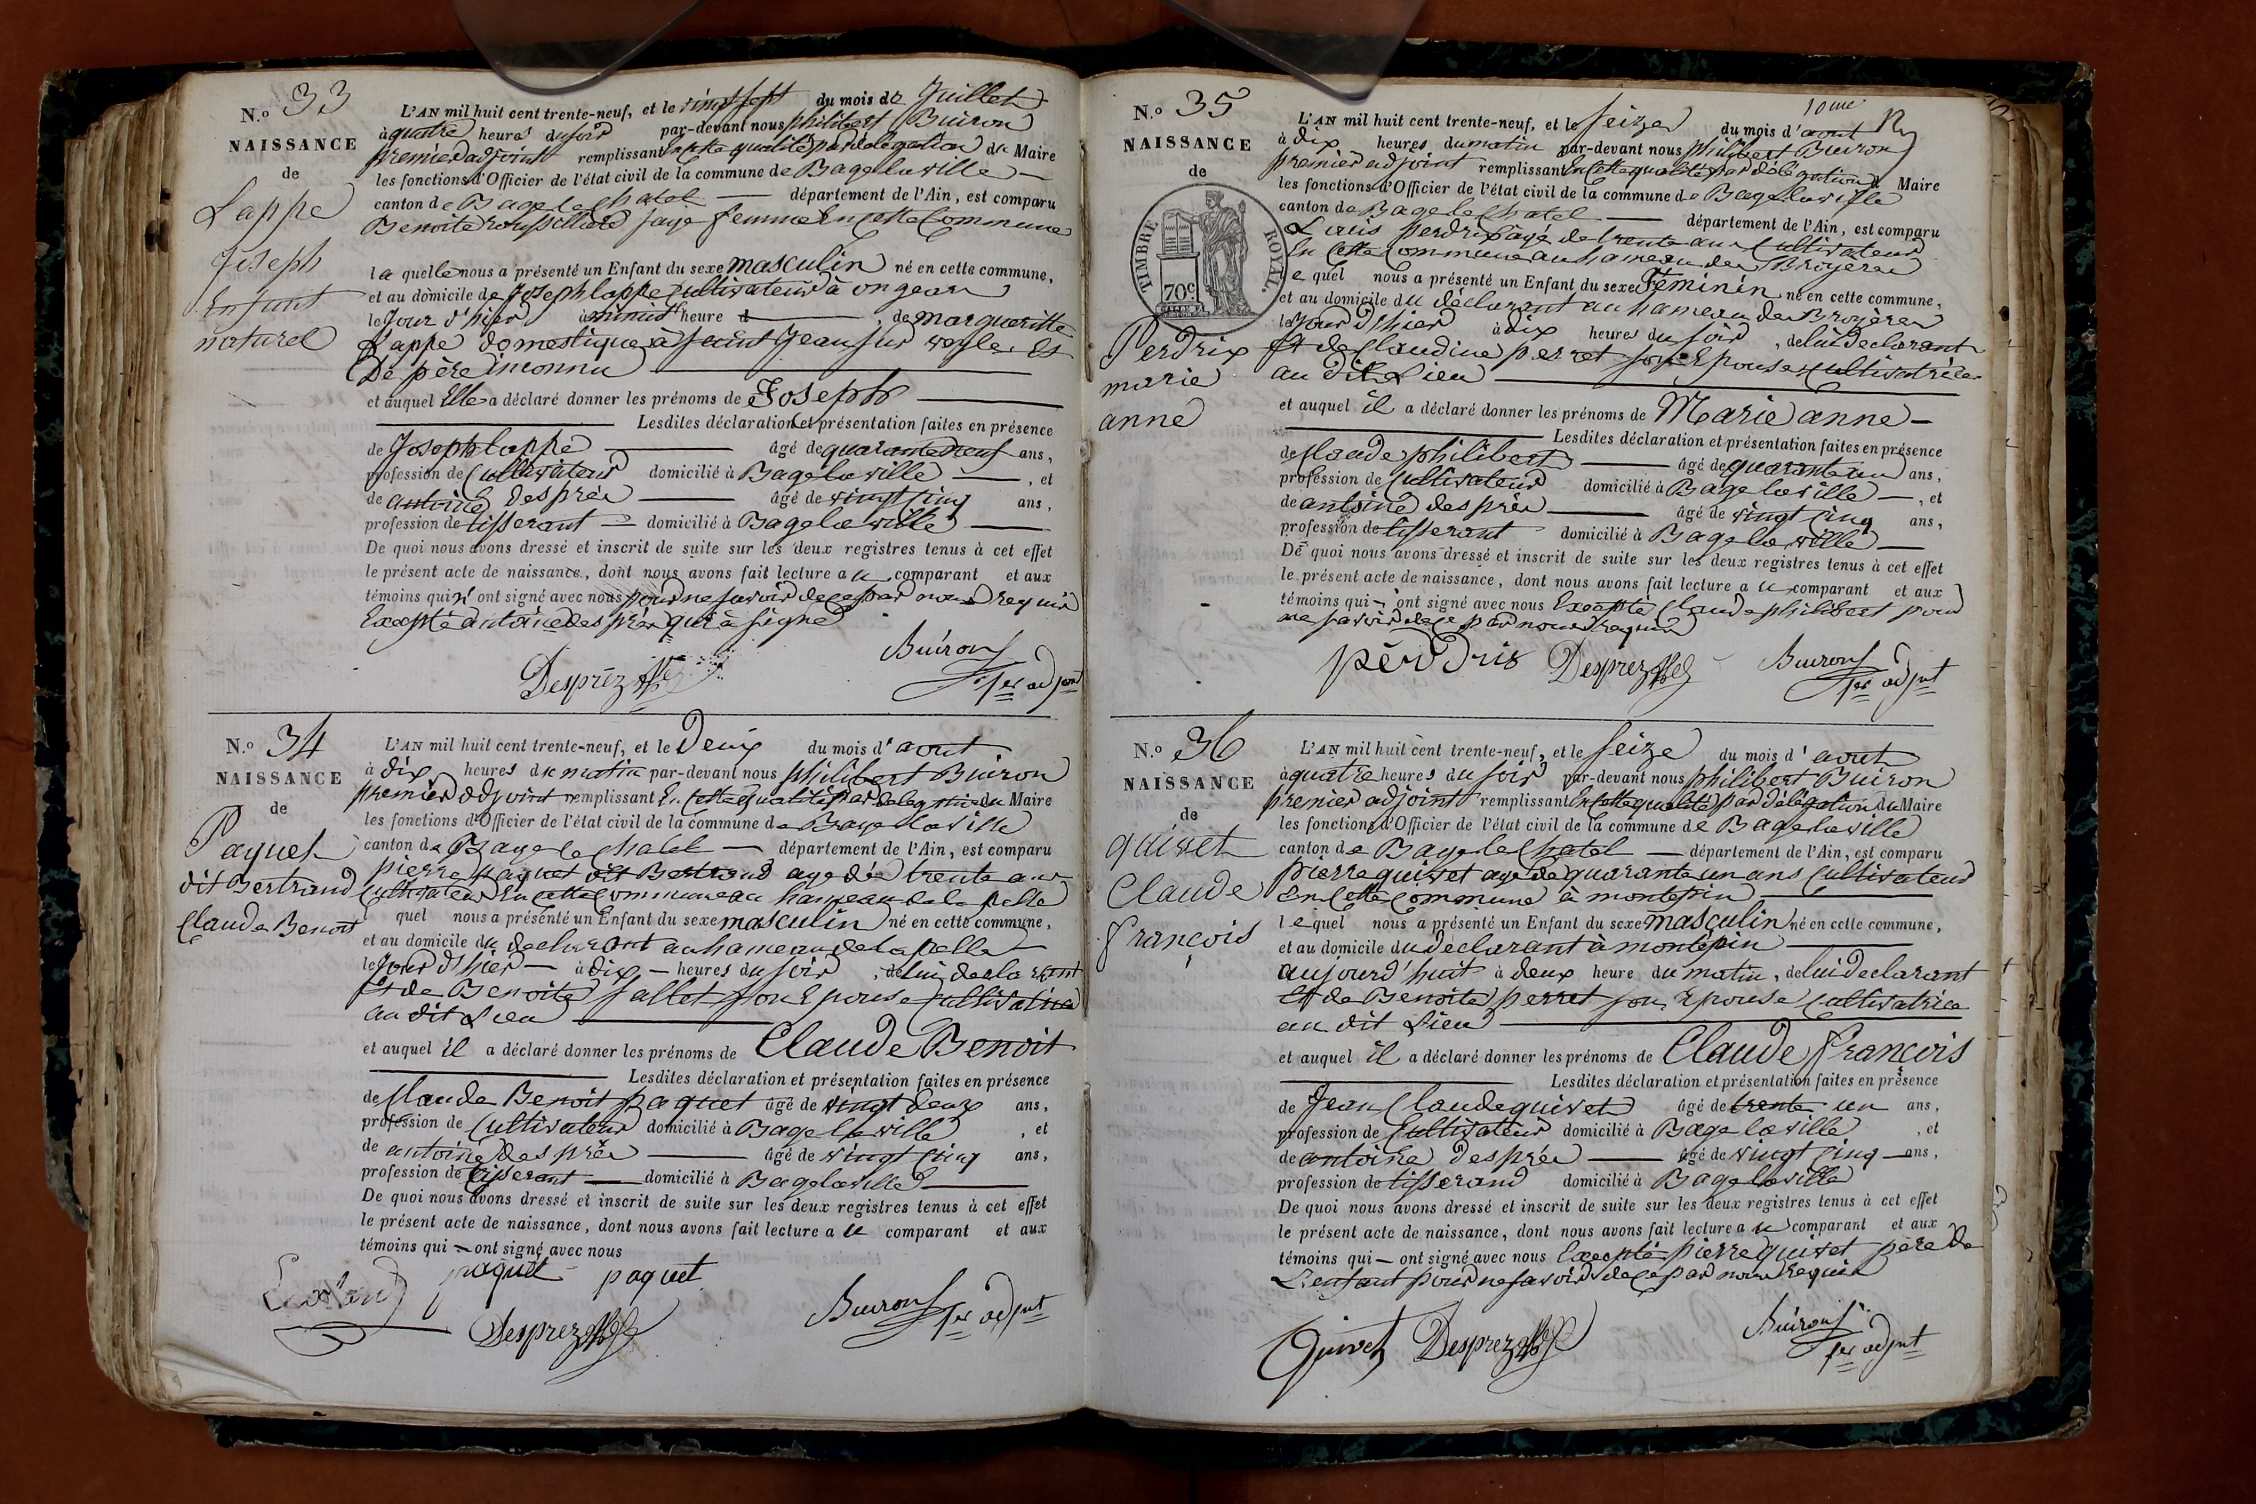 N.º 33
NAISSANCE
de
Lappe
Joseph
Enfant
naturel
L'AN mil huit cent trente-neuf, et le vingt sept du mois de Juillet
à quatre heures du soir par-devant nous philibert Buiron
premier adjoint remplissant en cette qualité par délégation du Maire
les fonctions d'Officier de l'état civil de la commune de Bagelaville
canton de Bage le Chatel département de l'Ain, est comparu
Benoite sage femme En cette Commune
la quelle nous a présenté un Enfant du sexe masculin né en cette commune,
et au domicile de Joseph lappe Cultivateur à ongean
le Jour d'hier à minuit heure , de margueritte
Lappe domestique à saint Jean sur veyle Et
De père inconnu
et auquel Elle a déclaré donner les prénoms de Joseph
Lesdites déclaration et présentation faites en présence
de Joseph lappe âgé de quarante neuf ans,
profession de Cultivateur domicilié à Bage la ville , et
de antoine desprée âgé de vingt Cinq ans,
profession de tisserant domicilié à Bage la ville
De quoi nous avons dressé et inscrit de suite sur les deux registres tenus à cet effet
le présent acte de naissance, dont nous avons fait lecture au comparant et aux
témoins qui n'ont signé avec nous pour ne savoir de ce par nous requis
Excepté antoine despree qui à signé
Desprez Buiron
1er adjoint
N.º 34
NAISSANCE
de
Paquet
dit Bertrand
Claude Benoit
L'AN mil huit cent trente-neuf, et le Deux du mois d'aout
à dix heures du matin par-devant nous philibert Buiron
premier adjoint remplissant En cette qualité par délégation du Maire
les fonctions d'Officier de l'état civil de la commune de Bage la ville
canton de Bage le Chatel département de l'Ain, est comparu
pierre paquet dit Bertrand age de trente ans
Cultivateur En cette Commune au hameau de la pelle
l quel nous a présenté un Enfant du sexe masculin né en cette commune,
et au domicile du declarant au hameau de la pelle
le Jour d'hier à dix heures du soir , de lui declarant
Et de Benoite fallet son Epouse Cultivatrice
au dit Lieu
et auquel il a déclaré donner les prénoms de Claude Benoit
Lesdites déclaration et présentation faites en présence
de Claude Benoit paquet âgé de vingt deux ans,
profession de Cultivateur domicilié à Bage la ville , et
de antoine desprée âgé de vingt Cinq ans,
profession de tisserant domicilié à Bagelaville
De quoi nous avons dressé et inscrit de suite sur les deux registres tenus à cet effet
le présent acte de naissance, dont nous avons fait lecture au comparant et aux
témoins qui ont signé avec nous
paquet paquet
Desprez Buiron 1er adjnt
N.º 35
NAISSANCE
de
TIMBRE ROYAL.
70c.
Perdrix
marie
anne
10me
L'AN mil huit cent trente-neuf, et le seize du mois d'aout
à dix heures du matin par-devant nous philibert Buiron
premier adjoint remplissant En cette qualité par délégation Maire
les fonctions d'Officier de l'état civil de la commune de Bage la ville
canton de Bage le Chatel département de l'Ain, est comparu
Louis perdrix agé de trente ans Cultivateur
En cette Commune au hameau des Broyère
le quel nous a présenté un Enfant du sexe Féminin né en cette commune,
et au domicile du déclarant au hameau des Broyères
le Jour d'hier à dix heures du soir , de lui declarant
Et de Claudine perret son Epouse Cultivatrice
au dit Lieu
et auquel il a déclaré donner les prénoms de Marie anne
Lesdites déclaration et présentation faites en présence
de Claude philibert âgé de quarante un ans,
profession de Cultivateur domicilié à Bage la ville , et
de antoine desprée âgé de vingt Cinq ans,
profession de tisserant domicilié à Bage la ville
De quoi nous avons dressé et inscrit de suite sur les deux registres tenus à cet effet
le présent acte de naissance, dont nous avons fait lecture au comparant et aux
témoins qui ont signé avec nous Excepté Claude philibert pour
ne savoir de ce par nous requis
pérdris Desprez Buiron
1er adjnt
N.º 36
NAISSANCE
de
quivet
Claude
françois
L'AN mil huit cent trente-neuf, et le seize du mois d'aout
à quatre heures du soir par-devant nous philibert Buiron
premier adjoint remplissant En cette qualité par délégation du Maire
les fonctions d'Officier de l'état civil de la commune de Bage la ville
canton de Bage le Chatel département de l'Ain, est comparu
pierre quivet age de quarante un ans Cultivateur
En Cette Commune à montépin
lequel nous a présenté un Enfant du sexe masculin né en cette commune,
et au domicile du declarant à montépin
aujourd'huit à deux heure du matin, de lui declarant
Et de Benoite perret son Epouse Cultivatrice
au dit Lieu
et auquel il a déclaré donner les prénoms de Claude françois
Lesdites déclaration et présentation faites en présence
de Jean Claude quivet âgé de trente un ans,
profession de Cultivateur domicilié à Bage la ville , et
de antoine desprée âgé de vingt Cinq ans,
profession de tisserand domicilié à Bage la ville
De quoi nous avons dressé et inscrit de suite sur les deux registres tenus à cet effet
le présent acte de naissance, dont nous avons fait lecture au comparant et aux
témoins qui ont signé avec nous Excepté pierre quivet père de
L'enfant pour ne savoir de ce par nous requis
Quivet Desprez Buiron
1er adjnt